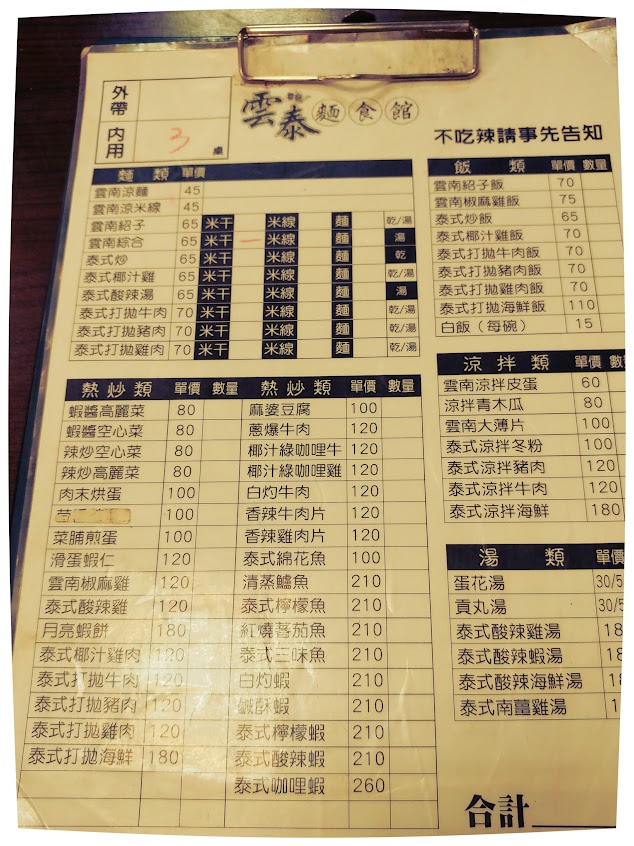 外帶
內用 3 桌
雲泰麵食館
不吃辣請事先告知
麵類 單價
雲南涼麵 45
雲南涼米線 45
雲南紹子 65 米干 米線 麵 乾/湯
雲南綜合 65 米干 米線 麵 湯
泰式炒 65 米干 米線 麵 乾
泰式椰汁雞 65 米干 米線 麵 乾/湯
泰式酸辣湯 65 米干 米線 麵 湯
泰式打拋牛肉 70 米干 米線 麵 乾/湯
泰式打拋豬肉 70 米干 米線 麵 乾/湯
泰式打拋雞肉 70 米干 米線 麵 乾/湯
飯類 單價 數量
雲南紹子飯 70
雲南椒麻雞飯 75
泰式炒飯 65
泰式椰汁雞飯 70
泰式打拋牛肉飯 70
泰式打拋豬肉飯 70
泰式打拋雞肉飯 70
泰式打拋海鮮飯 110
白飯(每碗) 15
熱炒類 單價 數量
蝦醬高麗菜 80
蝦醬空心菜 80
辣炒空心菜 80
辣炒高麗菜 80
肉末烘蛋 100
100
菜脯煎蛋 100
滑蛋蝦仁 120
雲南椒麻雞 120
泰式酸辣雞 120
月亮蝦餅 180
泰式椰汁雞肉 120
泰式打拋牛肉 120
泰式打拋豬肉 120
泰式打拋雞肉 120
泰式打拋海鮮 180
熱炒類 單價 數量
麻婆豆腐 100
蔥爆牛肉 120
椰汁綠咖哩牛 120
椰汁綠咖哩雞 120
白灼牛肉 120
香辣牛肉片 120
香辣雞肉片 120
泰式綿花魚 100
清蒸鱸魚 210
泰式檸檬魚 210
紅燒蕃茄魚 210
泰式三味魚 210
白灼蝦 210
鹹酥蝦 210
泰式檸檬蝦 210
泰式酸辣蝦 210
泰式咖哩蝦 260
涼拌類 單價 數
雲南涼拌皮蛋 60
涼拌青木瓜 80
雲南大薄片 100
泰式涼拌冬粉 100
泰式涼拌豬肉 120
泰式涼拌牛肉 120
泰式涼拌海鮮 180
湯類 單價
蛋花湯 30/5
貢丸湯 30/5
泰式酸辣雞湯 18
泰式酸辣蝦湯 18
泰式酸辣海鮮湯 18
泰式南薑雞湯 1
合計